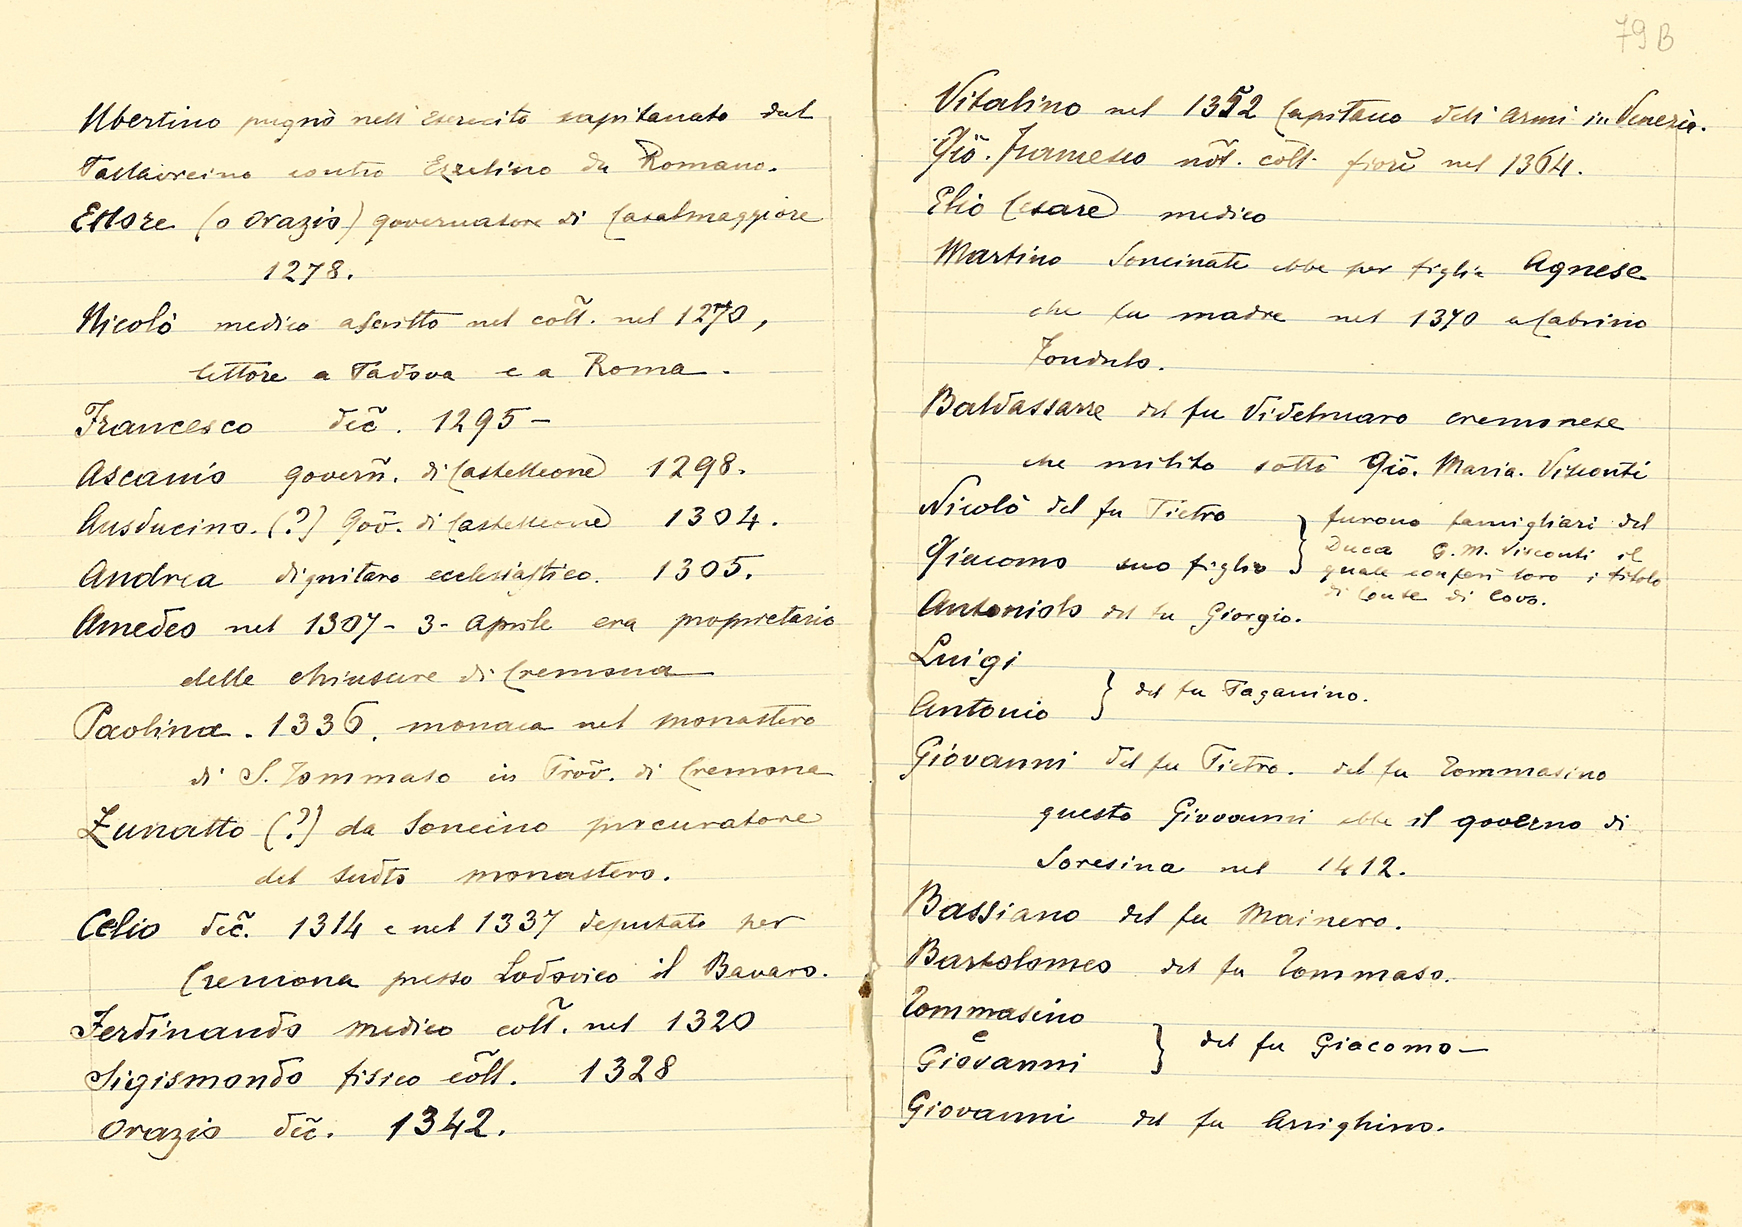 Ubertino pugnò nell'esercito capitanato dal
Pallavicino contro Ezzelino da Romano.
Ettore (o Orazio) governatore di Casalmaggiore
1278.
Nicolò medico ascritto nel coll. nel 1270,
lettore a Padova e a Roma.
Francesco dec. 1295 -
Ascanio govern. di Castelleone 1298.
Ansducino. (?) Gov. di Castelleone 1304.
Andrea dignitaro ecclesiastico. 1305.
Amedeo nel 1307 - 3 - Aprile era proprietario
delle chiusure di Cremona
Paolina. 1336. monaca nel monastero
di S. Tommaso in Prov. di Cremona
Zunatto (?) da Soncino procuratore
del sudto monastero.
Celio dec. 1314 e nel 1337 deputato per
Cremona presso Lodovico il Bavaro.
Ferdinando medico coll. nel 1320
Sigismondo fisico coll. 1328
Orazio dec. 1342.
79 B
Vitalino nel 1352 Capitano deli armi in Venezia.
Gio. Francesco not. coll. fiorì nel 1364.
Elio Cesare medico
Martino Soncinate ebbe per figlia Agnese
che fu madre nel 1370 a Cabrino
Fondulo.
Baldassarre del fu Videlmaro cremonese
che milito sotto Gio. Maria. Visconti
Nicolò del fu Pietro
Giacomo suo figlio
furono famigliari del
Duca G. M. Visconti il
quale conferì loro i titolo
di Conte di Covo.
Antoniolo del fu Giorgio.
Luigi
Antonio
del fu Paganino.
Giovanni del fu Pietro. del fu Tommasino
questo Giovanni ebbe il governo di
Soresina nel 1412.
Bassiano del fu Mainero.
Bartolomeo del fu Tommaso.
Tommasino
e
Giovanni
del fu Giacomo -
Giovanni del fu Arrighino.